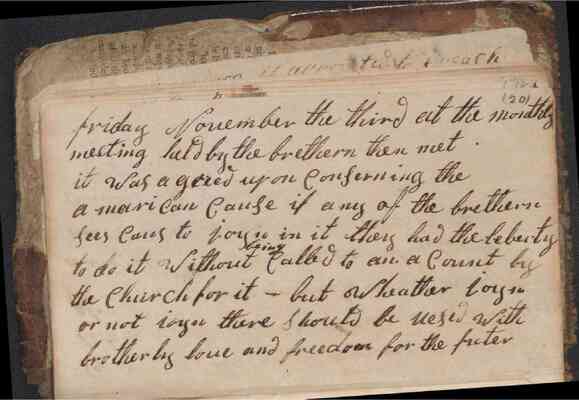 (20)
friday November the third at the monthly
meeting held by the brethern then met
it was agreed upon Conserning the
a marican Cause if any of the brethern
sees Caus to joyn in it they had the leberty
to do it without being Called to an a Count by
the Church for it - but wheather joyn
or not joyn there should be uesed with
brotherly love and freedom for the futer